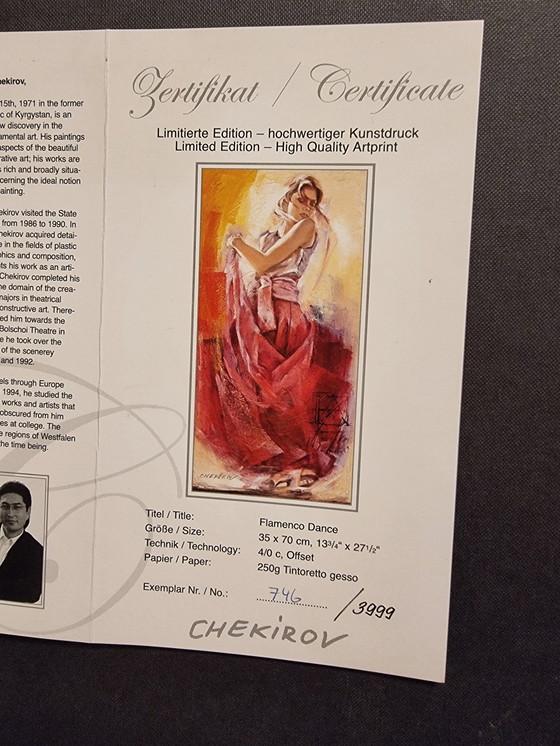 hekirov,
15th, 1971 in the former
c of Kyrgystan, is an
w discovery in the
amental art. His paintings
aspects of the beautiful
rative art; his works are
rich and broadly situa-
cerning the ideal notion
ainting.
ekirov visited the State
from 1986 to 1990. In
hekirov acquired detai-
e in the fields of plastic
phics and composition,
ts his work as an arti-
Chekirov completed his
he domain of the crea-
majors in theatrical
onstructive art. There-
ed him towards the
Bolschoi Theatre in
e he took over the
of the scenerey
and 1992.
els through Europe
1994, he studied the
works and artists that
obscured from him
es at college. The
e regions of Westfalen
the time being.
Zertifikat / Certificate
Limitierte Edition – hochwertiger Kunstdruck
Limited Edition – High Quality Artprint
CHEKIROV
Titel / Title: Flamenco Dance
Größe / Size: 35 x 70 cm, 13³/⁴" x 27¹/²"
Technik / Technology: 4/0 c, Offset
Papier / Paper: 250g Tintoretto gesso
Exemplar Nr. / No.: 746 /3999
CHEKIROV